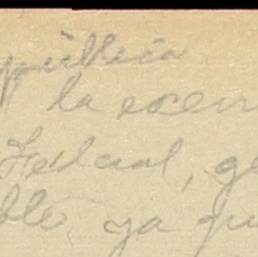 pública
la exen
Federal, ge
ble, ya qu